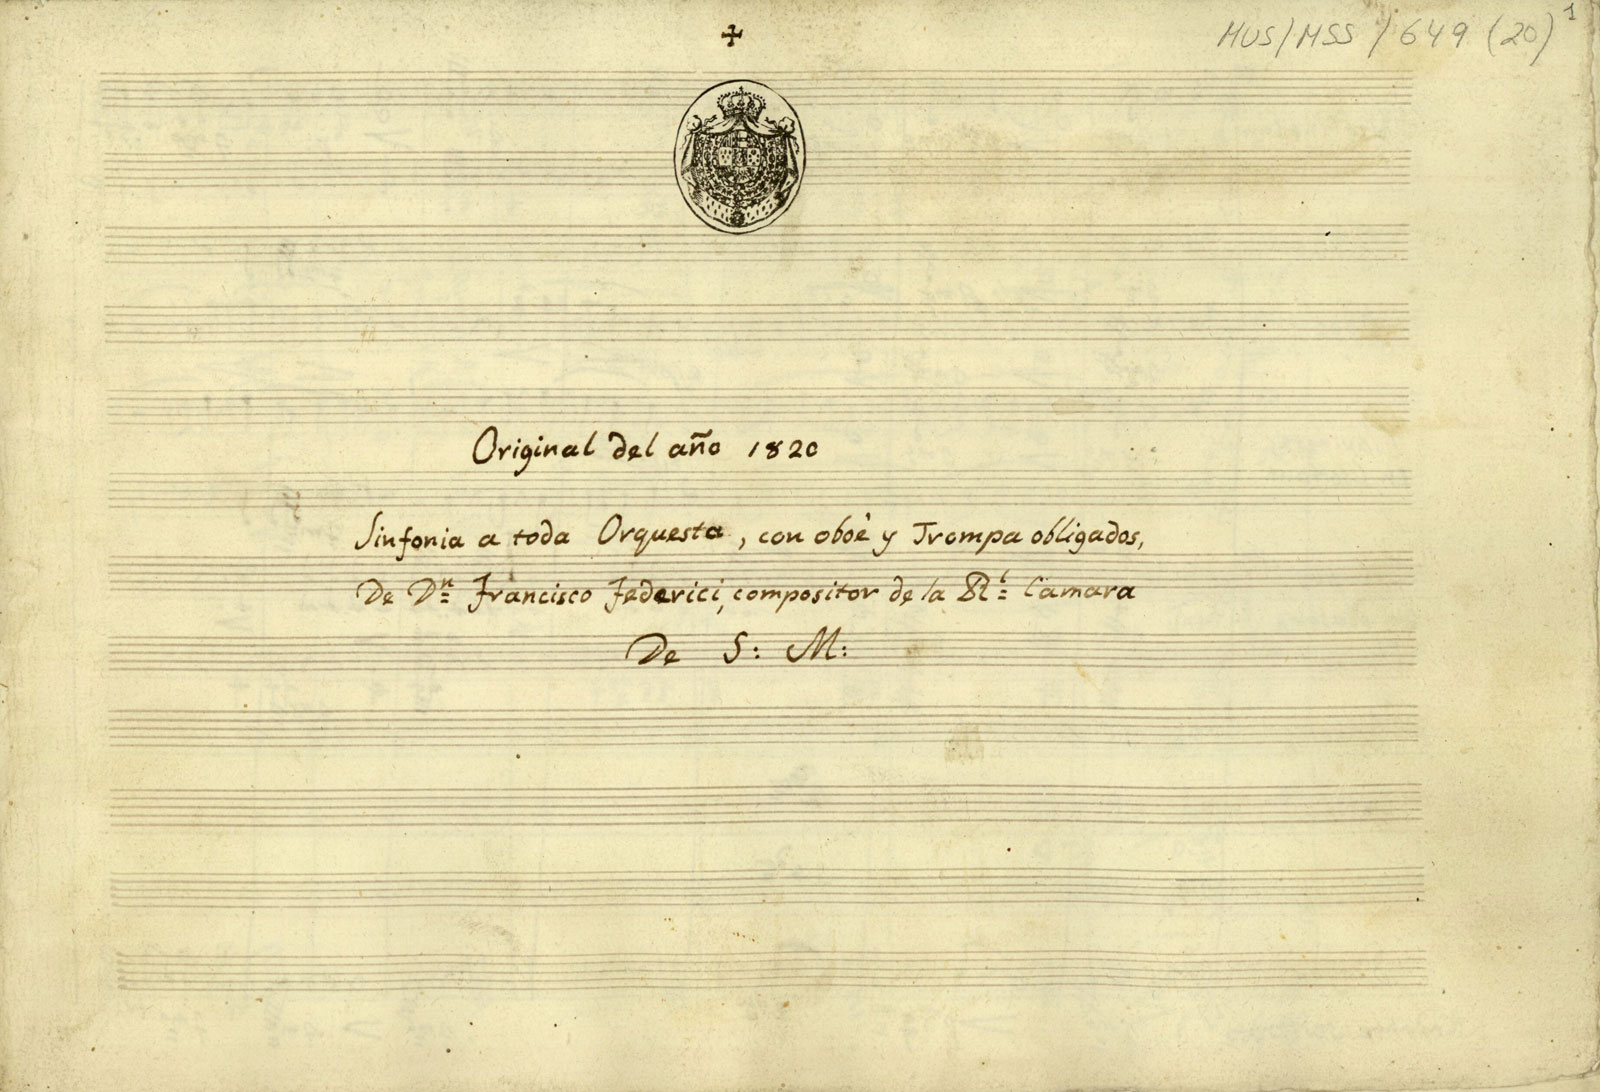 MUS/MSS/649 (20) 1
Original del año 1820
Sinfonia a toda Orquesta, con oboè y Trompa obligados,
De Dⁿ Francisco Federici, compositor de la Rˡ Camara
De S: M: